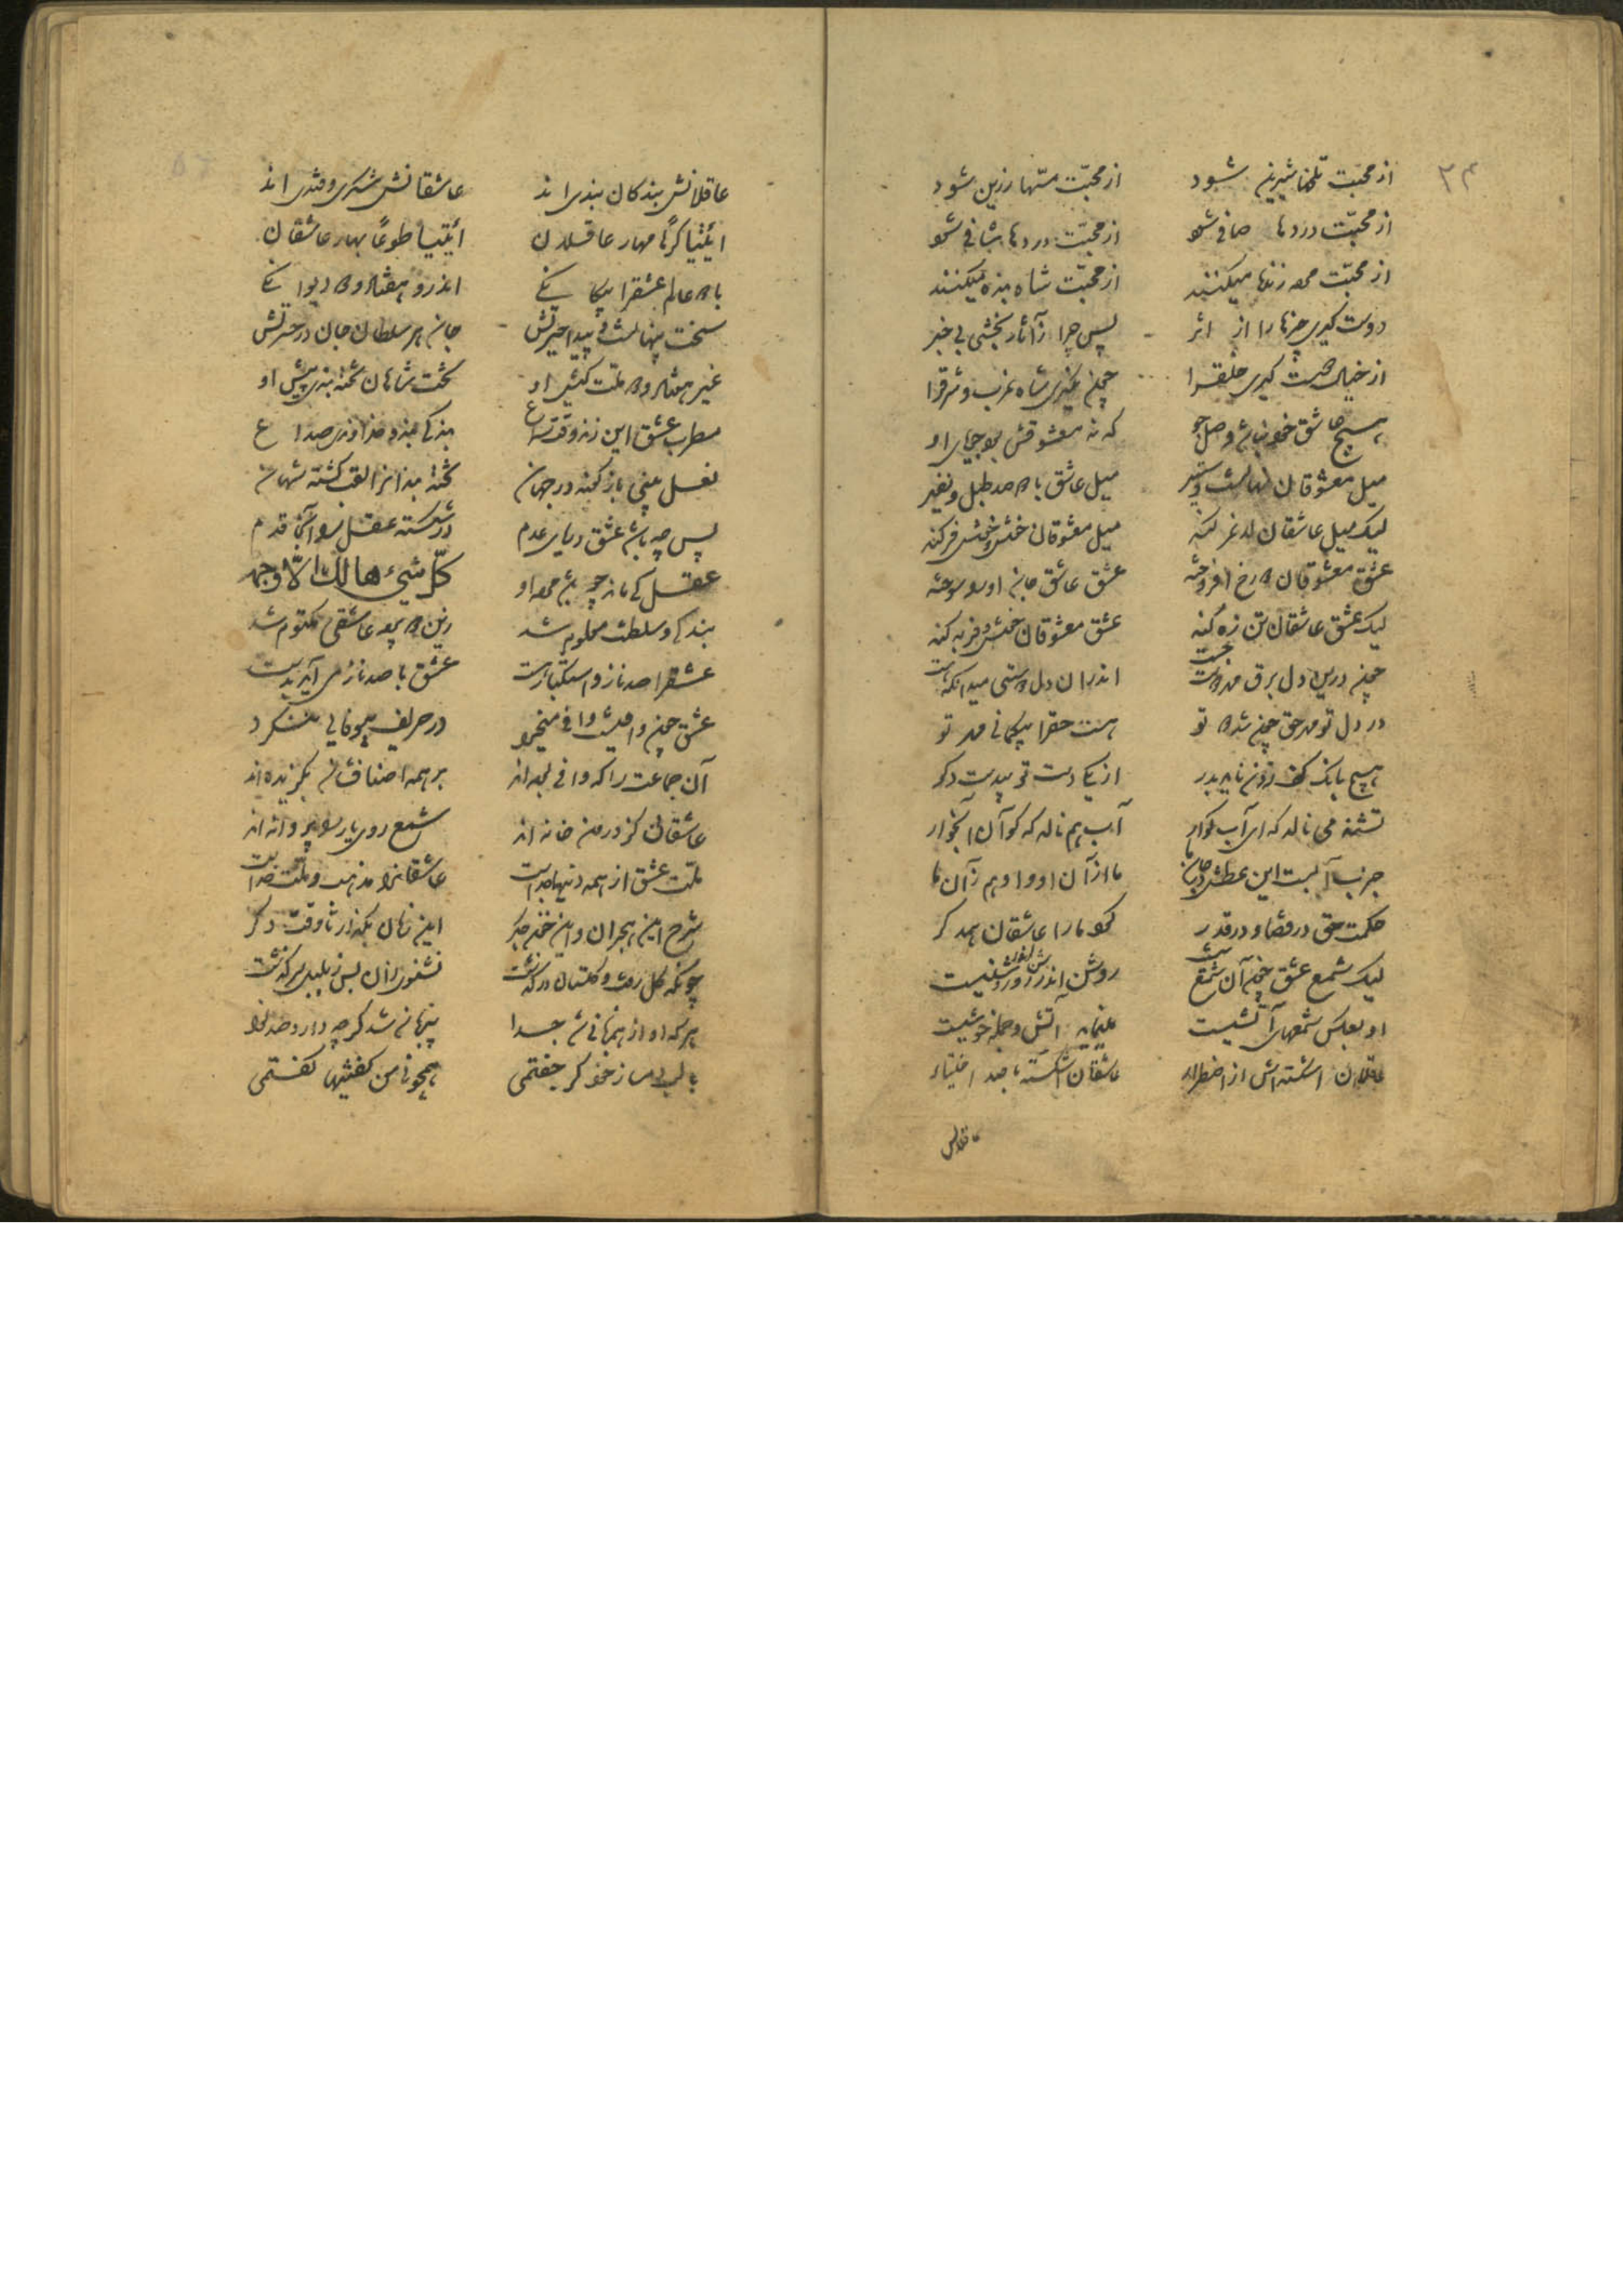 ۳۴
از محبّت تلخها شیرین شود از محبّت مسّها زرین شود
از محبّت دردها صافی شود از محبّت دردها شافی شود
از محبّت مرده زنده میکنند از محبّت شاه بنده میکنند
دوست گیری چیزها را از اثر پس چرا زآثار بخشی بی خبر
از خیالی دوست گیری خلقرا چون نگیری شاه غرب و شرقرا
هیچ عاشق خود نباشد وصل جو که نه معشوقش بود جویای او
میل معشوقان نهانست و ستیر میل عاشق با دو صد طبل و نفیر
لیک میل عاشقان لاغر کند میل معشوقان خوش و خوش فر کند
عشق معشوقان دو رخ افروخته عشق عاشق جان او را سوخته
لیک عشق عاشقان تن زه کند عشق معشوقان خوش و فربه کند
چون درین دل برق مهر دوست جست اندر آن دل دوستی میدان که هست
در دل تو مهر حق چون شد دو تو هست حقرا بیگمانی مهر تو
هیچ بانگ کف زدن ناید بدر از یکی دست تو بی دست دگر
تشنه می نالد که ای آب گوار آب هم نالد که کو آن آبخوار
جذب آبست این عطش در جان ما ما از آن او و او هم زآن ما
حکمت حق در قضا و در قدر کرد ما را عاشقان همدگر
لیک شمع عشق چون آن شمع نیست روشن اندر روشن اندر روشنیست
او بعکس شمعهای آتشیست مینماید آتش و جمله خوشیست
عاقلان اشکسته‌اش از اضطرار عاشقان اشکسته با صد اختیار
عاقلانش
عاقلانش بندگان بندی اند عاشقانش شکری و قندی اند
ائتیا کرهًا مهار عاقلان ائتیا طوعًا بهار عاشقان
با دو عالم عشقرا بیگانگی اندرو هفتاد و دو دیوانگی
سخت پنهانست و پیدا حیرتش جان هر سلطان جان در حسرتش
غیر هفتاد و دو ملّت کیش او تخت شاهان تخته بندی پیش او
مطرب عشق این زند وقت سماع بندگی بند و خداوندی صداع
نعل بینی باژگونه در جهان تخته بندانرا لقب گشته شهان
پس چه باشد عشق دریای عدم در شکسته عقل را آنجا قدم
عقل کی ماند چو باشد مرده او کلّ شیء هالك الّا وجهه
بندگی و سلطنت معلوم شد زین دو پرده عاشقی مکتوم شد
عشقرا صد ناز و استکبار هست عشق با صد ناز می آید بدست
عشق چون وافیست وافی میخرد در حریف بیوفایی ننگرد
آن جماعت را که وافی بوده‌اند بر همه اصنافشان بگزیده‌اند
عاشقان کز درون خانه اند شمع روی یار را پروانه اند
ملّت عشق از همه دینها جداست عاشقانرا مذهب و ملّت خداست
شرح این هجران و این خون جگر این زمان بگذار تا وقت دگر
چونکه گل رفت و گلستان درگذشت نشنوی زان پس ز بلبل سرگذشت
هر که او از همزبانی شد جدا بیزبان شد گرچه دارد صد نوا
با لب دمساز خود گر جفتمی همچو نی من گفتنیها گفتمی